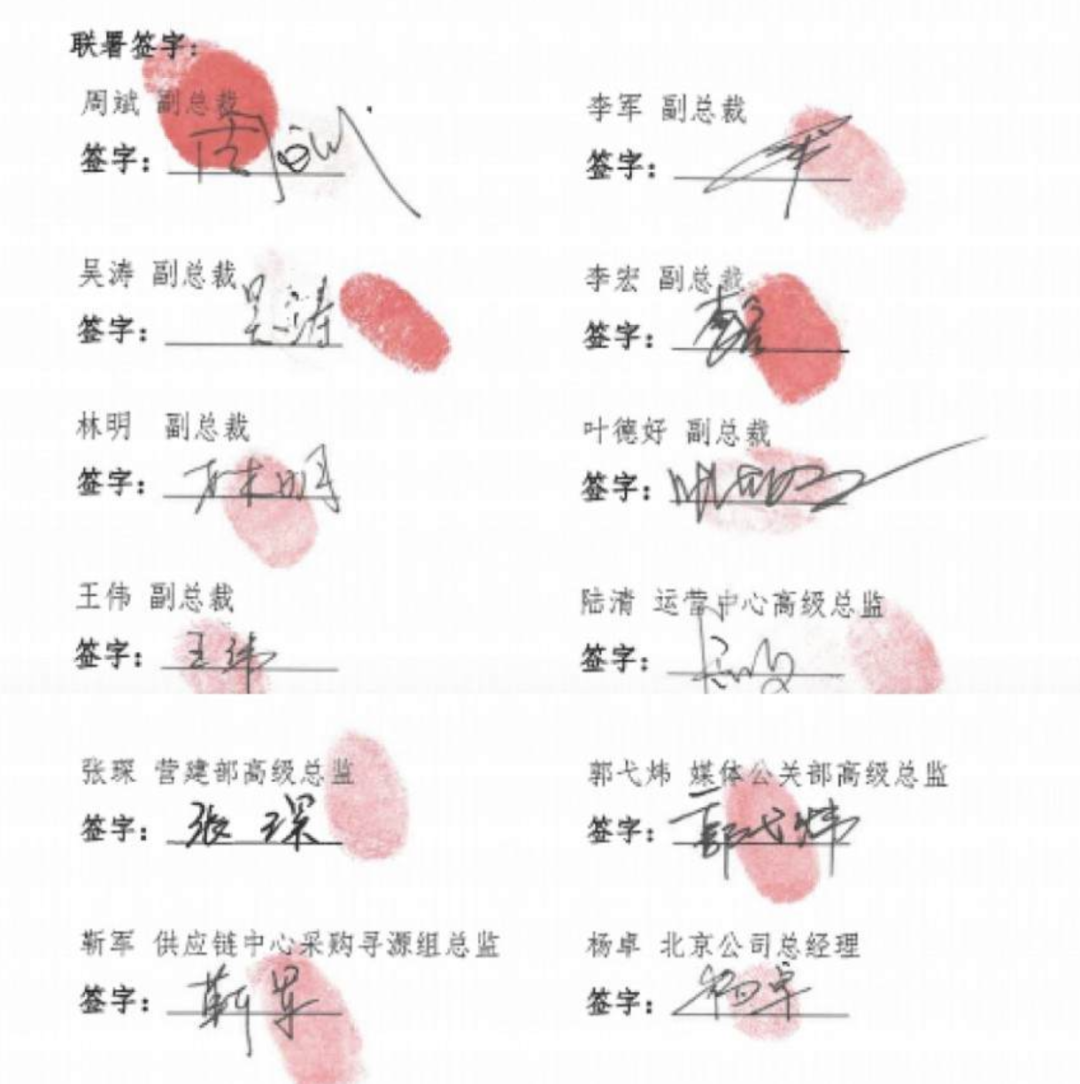 联署签字:
周斌 副总裁
签字: 周斌
李军 副总裁
签字:
吴涛 副总裁
签字: 吴涛
李宏 副总裁
签字: 李宏
林明 副总裁
签字: 林明
叶德好 副总裁
签字:
王伟 副总裁
签字: 王伟
陆清 运营中心高级总监
签字:
张琛 营建部高级总监
签字: 张琛
郭弋炜 媒体公关部高级总监
签字: 郭弋炜
靳军 供应链中心采购寻源组总监
签字: 靳军
杨卓 北京公司总经理
签字: 杨卓